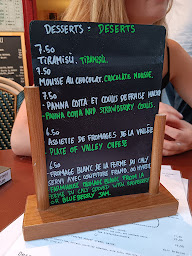 DESSERTS - DESERTS
7.50
TIRAMISÙ. TIRAMISÙ.
7.50
MOUSSE AU CHOCOLAT. CHOCOLATE MOUSSE.
7.50
- PANNA COTTA ET COULIS DE FRAISE MAISON
- PANNA COTTA AND STRAWBERRY COULIS.
6.50
ASSIETTE DE FROMAGES DE LA VALLÉE
PLATE OF VALLEY CHEESE
6.50
FROMAGE BLANC DE LA FERME DU CALY
SERVI AVEC CONFITURE FRAMB. OU MYRTIL
FARMHOUSE FROMAGE BLANC FROM LA
FERME DU CALY SERVED WITH RASPBERRY
OR BLUEBERRY JAM.